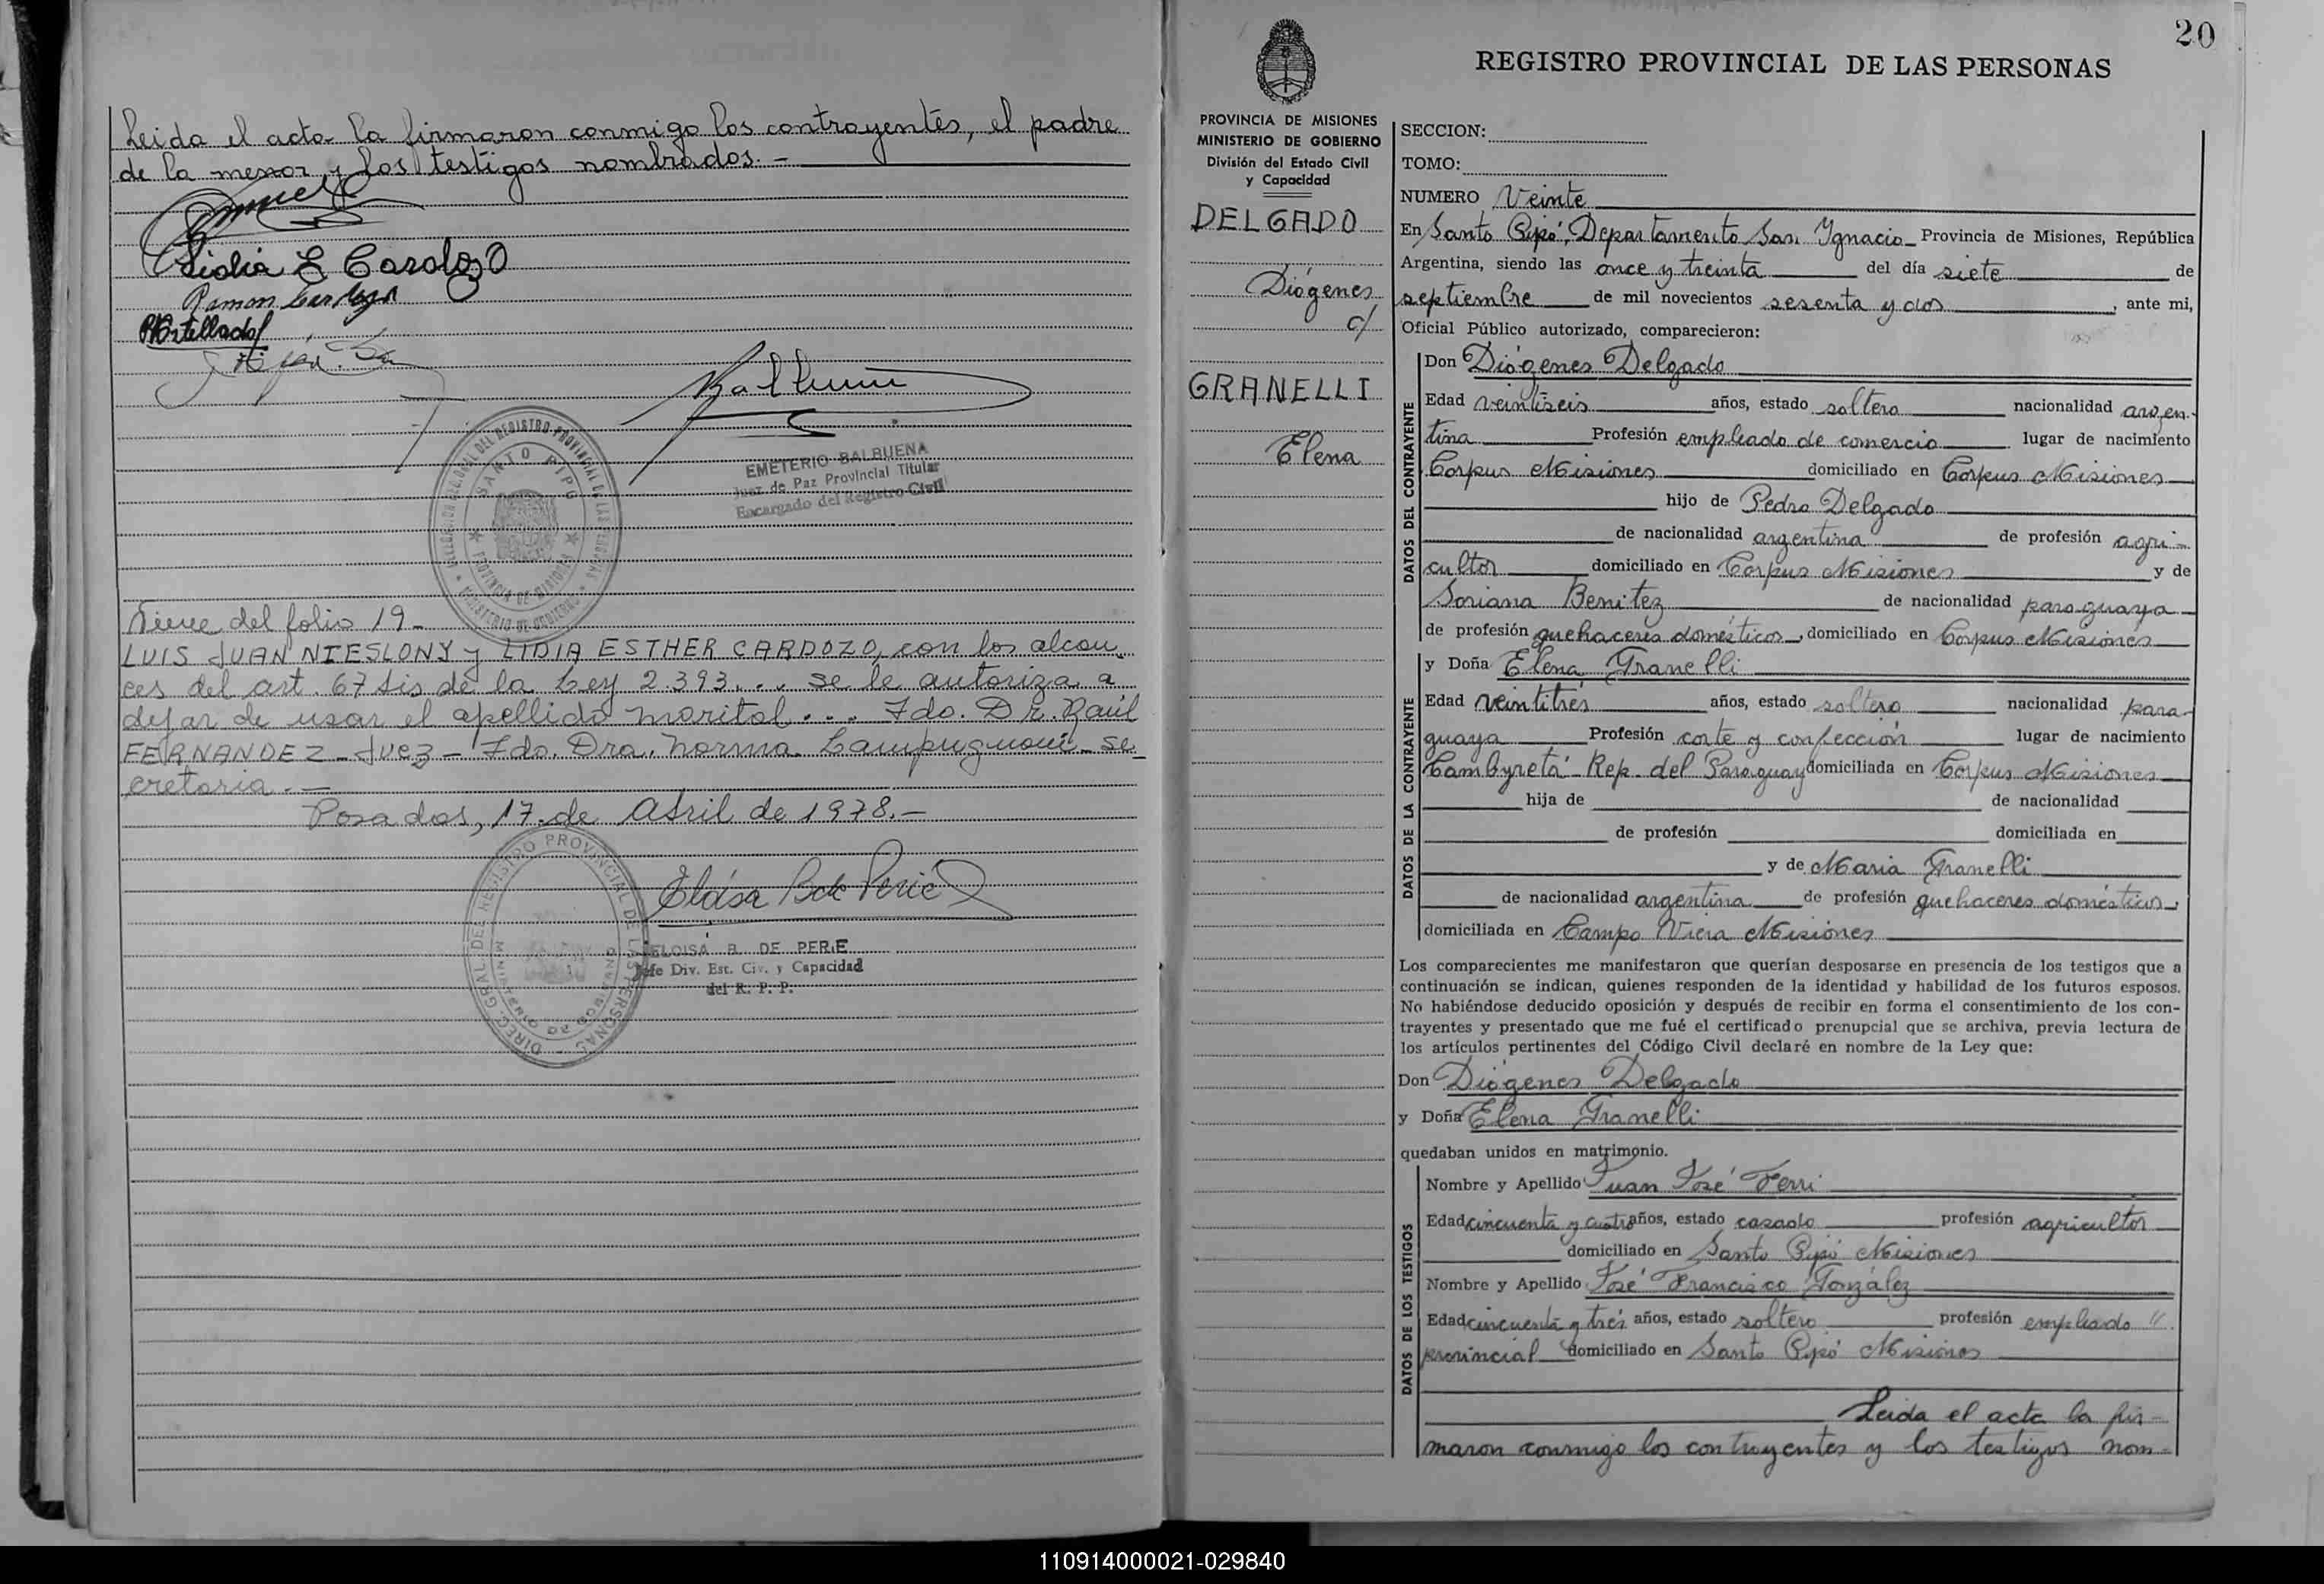 Leida el acta la firmaron conmigo los contrayentes, el padre
de la menor y los testigos nombrados.-
Lidia E Cardozo
Ramon Cardozo
EMETERIO BALBUENA
Juez de Paz Provincial Titular
Encargado del Registro Civil
SANTO PIPO
PROVINCIA DE MISIONES
MINISTERIO DE GOBIERNO
Viene del folio 19-
LUIS JUAN NIESLONY y LIDIA ESTHER CARDOZO, con los alcan-
ces del art. 67 bis de la Ley 2.393... se le autoriza a
dejar de usar el apellido marital... Fdo. Dr. Raúl
FERNANDEZ - Juez - Fdo. Dra. Norma Campugnoni - se-
cretaria.-
Posadas, 17 de Abril de 1978.-
ELOISA B. DE PERIE
Jefe Div. Est. Civ. y Capacidad
del R. P. P.
DIREC. GRAL. DEL REGISTRO PROVINCIAL DE LAS PERSONAS
20
REGISTRO PROVINCIAL DE LAS PERSONAS
PROVINCIA DE MISIONES
MINISTERIO DE GOBIERNO
División del Estado Civil
y Capacidad
DELGADO
Diógenes
c/
GRANELLI
Elena
SECCION:
TOMO:
NUMERO Veinte
En Santo Pipó, Departamento San Ignacio - Provincia de Misiones, República
Argentina, siendo las once y treinta del día siete de
septiembre de mil novecientos sesenta y dos, ante mi,
Oficial Público autorizado, comparecieron:
DATOS DEL CONTRAYENTE
Don Diógenes Delgado
Edad veintiseis años, estado soltero nacionalidad argen-
tina Profesión empleado de comercio lugar de nacimiento
Corpus Misiones domiciliado en Corpus Misiones
hijo de Pedro Delgado
de nacionalidad argentina de profesión agri-
cultor domiciliado en Corpus Misiones y de
Soriana Benitez de nacionalidad paraguaya
de profesión quehaceres domésticos, domiciliado en Corpus Misiones
DATOS DE LA CONTRAYENTE
y Doña Elena Granelli
Edad veintitrés años, estado soltera nacionalidad para-
guaya Profesión corte y confección lugar de nacimiento
Cambyretá - Rep. del Paraguay domiciliada en Corpus Misiones
hija de de nacionalidad
de profesión domiciliada en
y de Maria Granelli
de nacionalidad argentina de profesión quehaceres domésticos,
domiciliada en Campo Viera Misiones
Los comparecientes me manifestaron que querían desposarse en presencia de los testigos que a
continuación se indican, quienes responden de la identidad y habilidad de los futuros esposos.
No habiéndose deducido oposición y después de recibir en forma el consentimiento de los con-
trayentes y presentado que me fué el certificado prenupcial que se archiva, previa lectura de
los artículos pertinentes del Código Civil declaré en nombre de la Ley que:
Don Diógenes Delgado
y Doña Elena Granelli
quedaban unidos en matrimonio.
DATOS DE LOS TESTIGOS
Nombre y Apellido Juan José Ferri
Edad cincuenta y cuatro años, estado casado profesión agricultor
domiciliado en Santo Pipó Misiones
Nombre y Apellido José Francisco González
Edad cincuenta y trés años, estado soltero profesión empleado "
provincial domiciliado en Santo Pipó Misiones
Leida el acta la fir-
maron conmigo los contrayentes y los testigos nom-
110914000021-029840